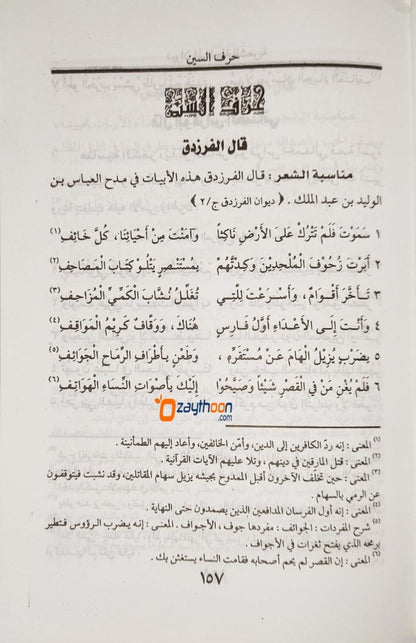 حرف السين
حرف السين
قال الفرزدق
مناسبة الشعر : قال الفرزدق هذه الأبيات في مدح العباس بن
الوليد بن عبد الملك . ( ديوان الفرزدق ج/٢ )
١ سَمَوْتَ فَلَمْ تَتْرُكْ عَلَى الأَرْضِ نَاكِثاً وَآمَنْتَ مِنْ أَحْيَائِنَا، كُلَّ خَائِفِ(١)
٢ أَبَرْتَ زُحُوفَ الْمُلْحِدِينَ وَكِدْتَهُمْ بِمُسْتَنْصِرٍ يَتْلُو كِتَابَ الْمَصَاحِفِ(٢)
٣ تَأَخَّرَ أَقْوَامٌ، وَأَسْرَعْتَ لِلَّتِي تُفَلِّلُ نُشَّابَ الْكَمِيِّ الْمُزَاحِفِ(٣)
٤ وَأَنْتَ إِلَى الأَعْدَاءِ أَوَّلُ فَارِسٍ هُنَاكَ، وَوَقَّافٌ كَرِيمُ الْمَوَاقِفِ(٤)
٥ بِضَرْبٍ يُزِيلُ الْهَامَ عَنْ مُسْتَقَرِّهِ ، وَطَعْنٍ بِأَطْرَافِ الرِّمَاحِ الْجَوَائِفِ(٥)
٦ فَلَمْ يُغْنِ مَنْ فِي الْقَصْرِ شَيْئاً وَصَيَّحُوا إِلَيْكَ بِأَصْوَاتِ النِّسَاءِ الْهَوَاتِفِ(٦)
zaythoon
.com
(١) المعنى : إنه ردّ الكافرين إلى الدين، وأمّن الخائفين، وأعاد إليهم الطمأنينة .
(٢) المعنى : قتل المارقين في دينهم ، وتلا عليهم الآيات القرآنية .
(٣) المعنى : حين تخلف الآخرون أقبل الممدوح بجيشه يزيل سهام المقاتلين، وقد نشبت فيتوقفون
عن الرمي بالسهام .
(٤) المعنى : إنه أول الفرسان المدافعين الذين يصمدون حتى النهاية .
(٥) شرح المفردات : الجوائف : مفردها جوف، الأجواف . المعنى : إنه يضرب الرؤوس فتطير
برمحه الذي يفتح ثغرات في الأجواف .
(٦) المعنى : إن القصر لم يحم أصحابه فقامت النساء يستغثن بك .
١٥٧